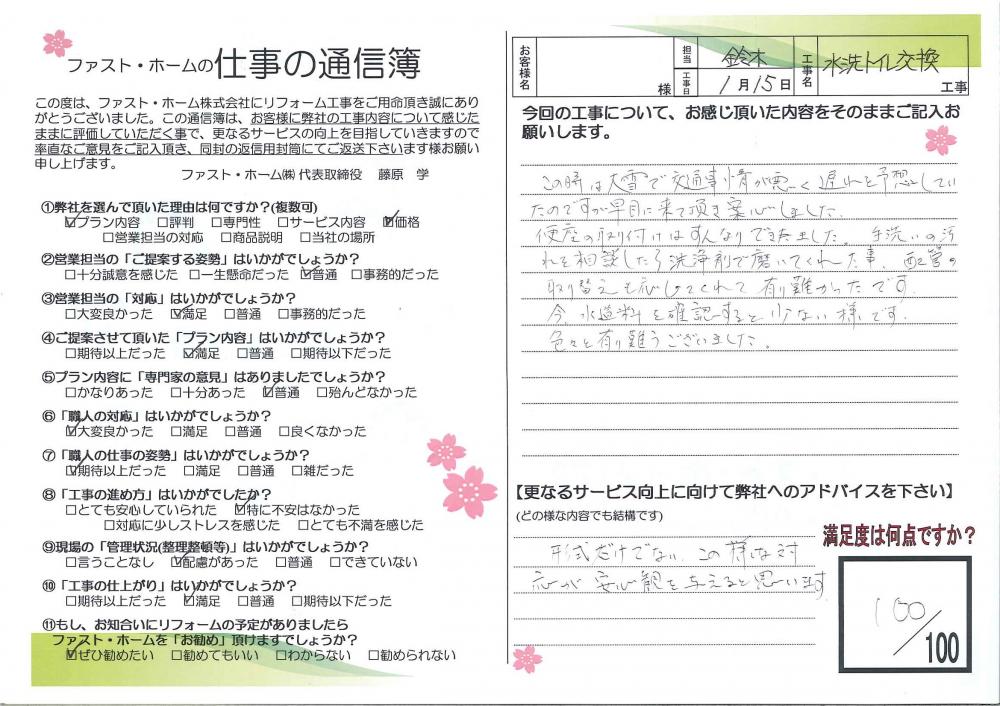 ファスト・ホームの仕事の通信簿
この度は、ファスト・ホーム株式会社にリフォーム工事をご用命頂き誠にあり
がとうございました。この通信簿は、お客様に弊社の工事内容について感じた
ままに評価していただく事で、更なるサービスの向上を目指していきますので
率直なご意見をご記入頂き、同封の返信用封筒にてご返送下さいます様お願い
申し上げます。
ファスト・ホーム㈱ 代表取締役 藤原 学
①弊社を選んで頂いた理由は何ですか?(複数可)
☑プラン内容 □評判 □専門性 □サービス内容 ☑価格
□営業担当の対応 □商品説明 □当社の場所
②営業担当の「ご提案する姿勢」はいかがでしょうか?
□十分誠意を感じた □一生懸命だった ☑普通 □事務的だった
③営業担当の「対応」はいかがでしょうか?
□大変良かった ☑満足 □普通 □事務的だった
④ご提案させて頂いた「プラン内容」はいかがでしょうか?
□期待以上だった ☑満足 □普通 □期待以下だった
⑤プラン内容に「専門家の意見」はありましたでしょうか?
□かなりあった □十分あった ☑普通 □殆んどなかった
⑥「職人の対応」はいかがでしょうか?
☑大変良かった □満足 □普通 □良くなかった
⑦「職人の仕事の姿勢」はいかがでしょうか?
☑期待以上だった □満足 □普通 □雑だった
⑧「工事の進め方」はいかがでしたか?
□とても安心していられた ☑特に不安はなかった
□対応に少しストレスを感じた □とても不満を感じた
⑨現場の「管理状況(整理整頓等)」はいかがでしょうか?
□言うことなし ☑配慮があった □普通 □できていない
⑩「工事の仕上がり」はいかがでしょうか?
□期待以上だった ☑満足 □普通 □期待以下だった
⑪もし、お知合いにリフォームの予定がありましたら
ファスト・ホームを「お勧め」頂けますでしょうか?
☑ぜひ勧めたい □勧めてもいい □わからない □勧められない
お客様名 様 担当 鈴木 工事日 1月15日 工事名 水洗トイレ交換 工事
今回の工事について、お感じ頂いた内容をそのままご記入お
願いします。
この時は大雪で交通事情が悪く遅れと予想してい
たのですが早目に来て頂き安心しました。
便座の取り付けはすんなりできました。手洗いの汚
れを相談したら洗浄剤で磨いてくれた事、配管の
取り替えも応じてくれて有り難かったです。
今水道料を確認すると少ない様です。
色々と有り難うございました。
【更なるサービス向上に向けて弊社へのアドバイスを下さい】
(どの様な内容でも結構です)
形式だけでない、この様な対
応が安心観を与えると思います
満足度は何点ですか?
100/100